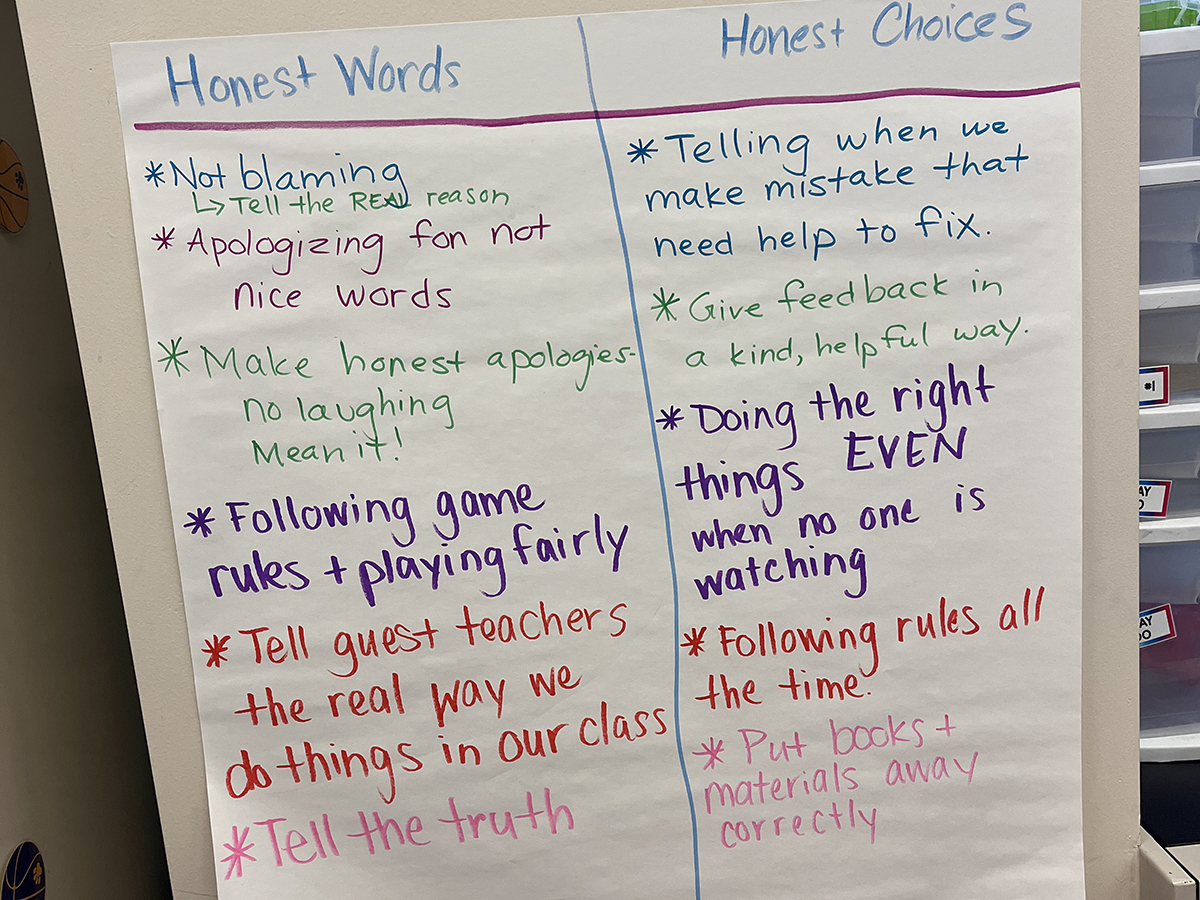 Honest Words
*Not blaming
↳ Tell the REAL reason
* Apologizing fon not
nice words
* Make honest apologies-
no laughing
Mean it!
* Following game
rules + playing fairly
* Tell guest teachers
the real way we
do things in our class
* Tell the truth
Honest Choices
* Telling when we
make mistake that
need help to fix.
* Give feedback in
a kind, helpful way.
* Doing the right
things EVEN
when no one is
watching
* Following rules all
the time.
* Put books +
materials away
correctly
#1
AY
AY